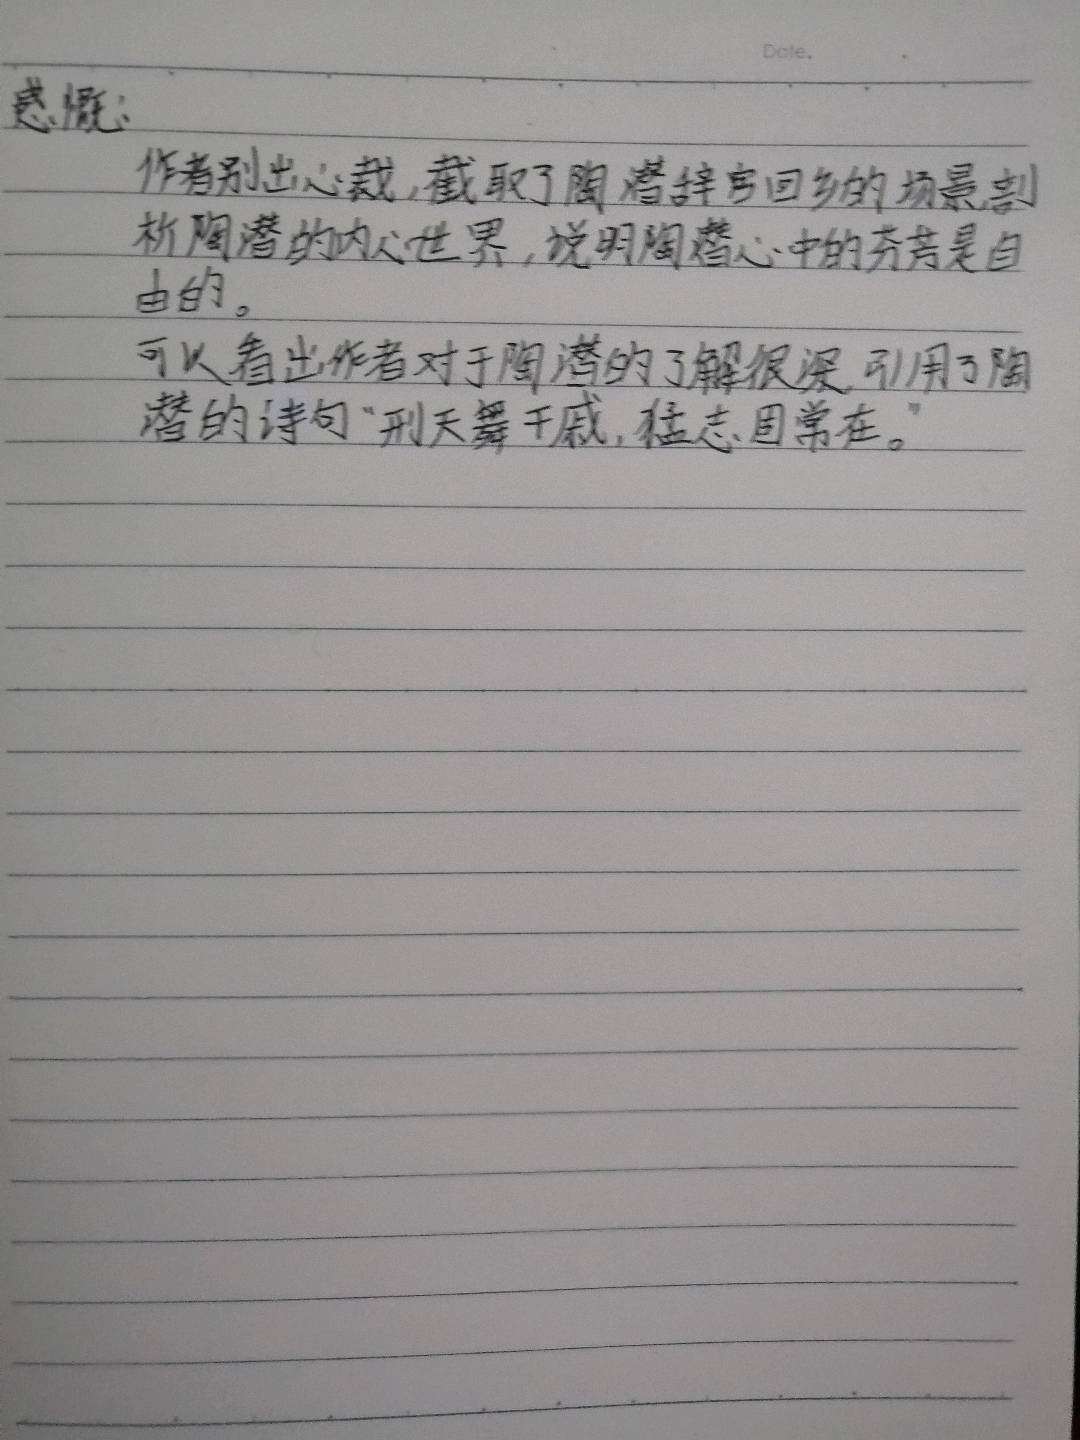 Date.
感慨：
作者别出心裁，截取了陶潜辞官回乡的场景剖
析陶潜的内心世界，说明陶潜心中的芬芳是自
由的。
可以看出作者对于陶潜的了解很深，引用了陶
潜的诗句“刑天舞干戚，猛志固常在。”